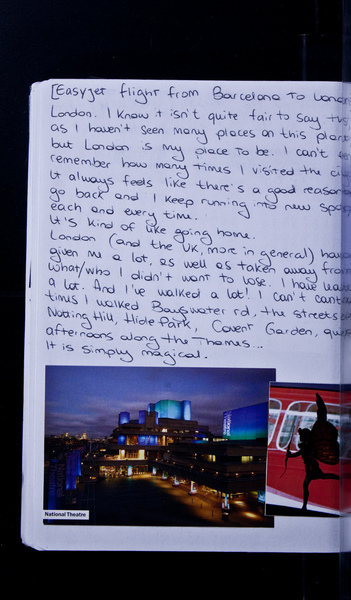 [Easyjet flight from Barcelona to London
London. I know it isn't quite fair to say this
as I haven't seen many places on this planet
but London is my place to be. I can't
remember how many times I visited the
It always feels like there's a good reason to
go back and I keep running into new
each and every time.
It's kind of like going home.
London (and the UK, more in general) have
given me a lot, as well as taken away from
what/who I didn't want to lose. I have
a lot. And I've walked a lot! I can't
times I walked Bayswater rd, the streets
Notting Hill, Hide Park, Covent Garden,
afternoons along the Thames...
It is simply magical.
National Theatre